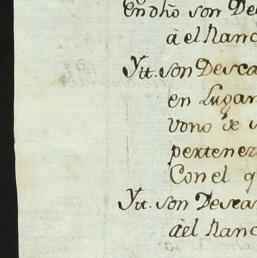 En dho son Des
à el Ranc
Yt. son Desca
en Lugar
vono de s
pertener
Con el q
Yt. son Desca
àel Ranc